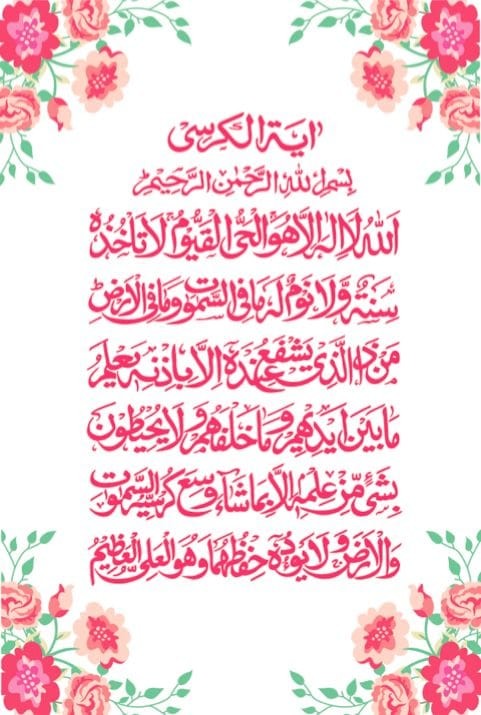 اٰية الكرسى
بِسْمِ اللهِ الرَّحْمٰنِ الرَّحِيْمِ
اَللهُ لَا اِلٰهَ اِلَّا هُوَ الْحَىُّ الْقَيُّوْمُ لَا تَاْخُذُهٗ
سِنَةٌ وَّلَا نَوْمٌ لَهٗ مَا فِى السَّمٰوٰتِ وَمَا فِى الْاَرْضِ
مَنْ ذَا الَّذِىْ يَشْفَعُ عِنْدَهٗ اِلَّا بِاِذْنِهٖ يَعْلَمُ
مَا بَيْنَ اَيْدِيْهِمْ وَمَا خَلْفَهُمْ وَلَا يُحِيْطُوْنَ
بِشَىْءٍ مِّنْ عِلْمِهٖ اِلَّا بِمَا شَآءَ وَسِعَ كُرْسِيُّهُ السَّمٰوٰتِ
وَالْاَرْضَ وَلَا يَـُٔوْدُهٗ حِفْظُهُمَا وَهُوَ الْعَلِىُّ الْعَظِيْمُ